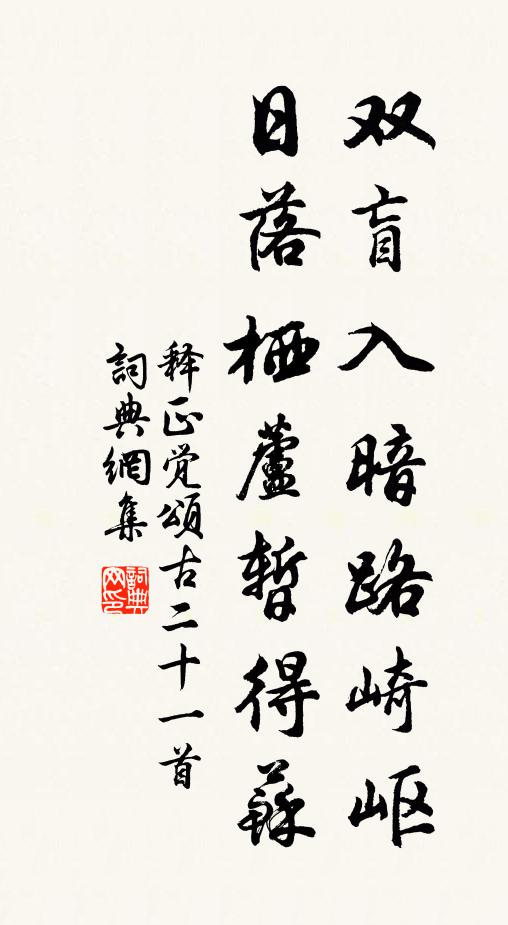 双盲入暗路崎岖
日落栖蘆暫得蘇
释正觉頌古二十一首
詞典網集
詞典网印